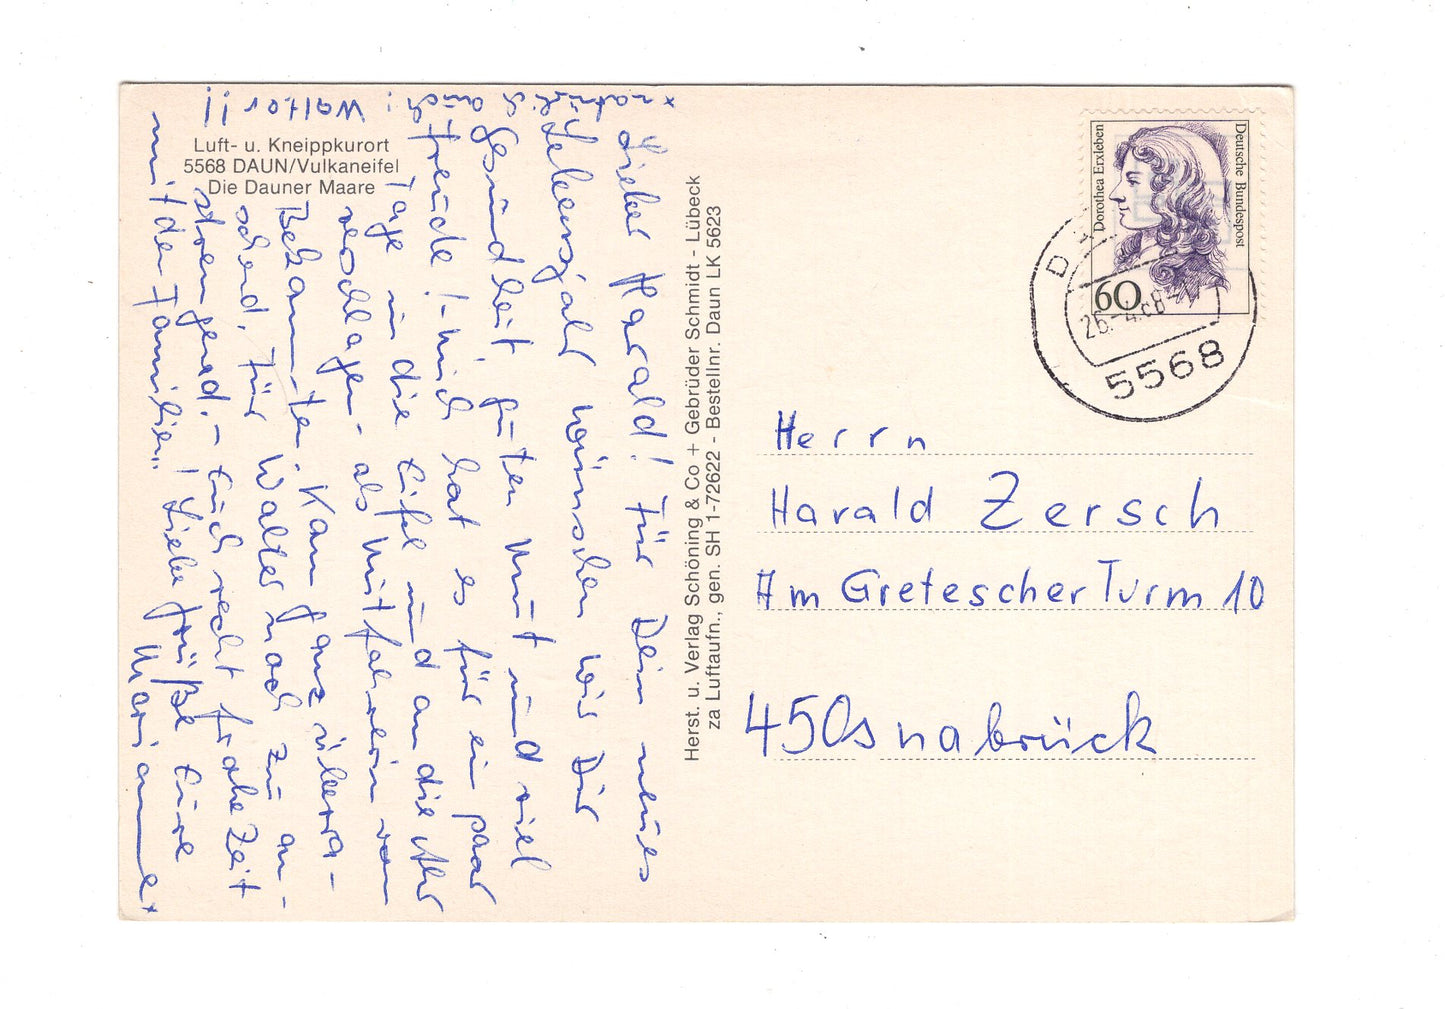 Luft- u. Kneippkurort
5568 DAUN/Vulkaneifel
Die Dauner Maare
Lieber Harald! Für Dein neues
Lebensjahr wünschen wir Dir
Gesundheit, guten Mut und viel
Freude! - Mich hat es für ein paar
Tage in die Eifel und an die Ahr
verschlagen - als Mitfahrerin von
Bekannten. Kam ganz überra-
schend. Für Walter nach zu an-
strengend. - Euch recht frohe Zeit
mit der Familie! Liebe Grüße Eure
Marianne*
* natürlich auch: Walter!!
Herst. u. Verlag Schöning & Co + Gebrüder Schmidt - Lübeck
za Luftaufn., gen. SH 1-72622 - Bestellnr. Daun LK 5623
Deutsche Bundespost
Dorothea Erxleben
60
26.-4.88
5568
Herrn
Harald Zersch
Am Gretescher Turm 10
45 Osnabrück